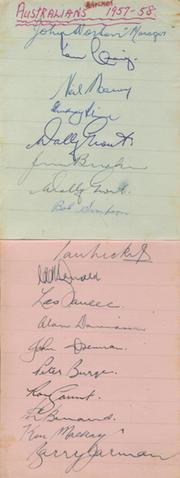 Cricket
AUSTRALIANS 1957-58.
John Norton "Manager"
Ian Craig
Neil Harvey
Wally Grout
Wally Grout
Bob Simpson
C McDonald
Les Favell
Alan Davidson
John Drennan.
Peter Burge.
Ron Gaunt.
R Benaud
Ken Mackay
Barry Jarman